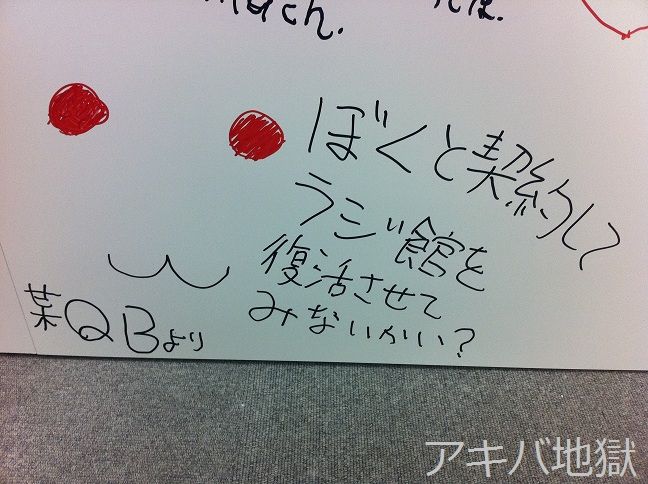 ぼくと契約して
ラジ館を
復活させて
みないかい?
某QBより
アキバ地獄